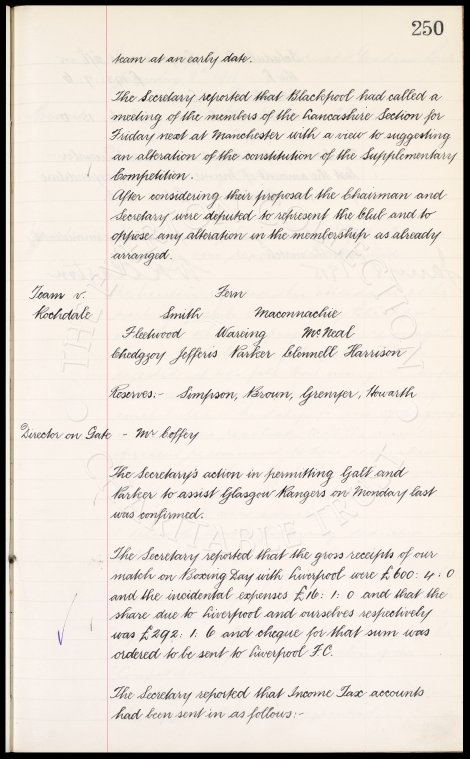 250
team at an early date.
The Secretary reported that Blackpool had called a
meeting of the members of the Lancashire Section for
Friday next at Manchester with a view to suggesting
an alteration of the constitution of the Supplementary
Competition.
After considering their proposal the Chairman and
Secretary were deputed to represent the Club and to
oppose any alteration in the membership as already
arranged.
Team v. Fern
Rochdale Smith Maconnachie
Fleetwood Wareing McNeal
Chedgzoy Jefferis Parker Clennell Harrison
Reserves:- Simpson, Brown, Grenyer, Howarth
Director on Gate - Mr Coffey
The Secretary's action in permitting Galt and
Parker to assist Glasgow Rangers on Monday last
was confirmed.
The Secretary reported that the gross receipts of our
match on Boxing Day with Liverpool were £600: 4: 0
and the incidental expenses £16: 1: 0 and that the
share due to Liverpool and ourselves respectively
was £292: 1: 6 and cheque for that sum was
ordered to be sent to Liverpool F.C.
The Secretary reported that Income Tax accounts
had been sent in as follows:-